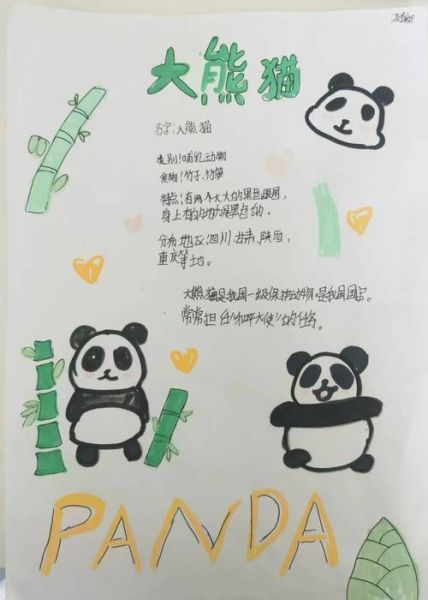 大熊猫
名字:大熊猫
类别:哺乳动物
食物:竹子、竹笋
特点:有两个大大的黑色眼圈,
身上有的地方是黑色的。
分布地区:四川、甘肃、陕西、
重庆等地。
大熊猫是我国一级保护动物,是我国国宝。
常常担任“和平大使”的任务。
PANDA